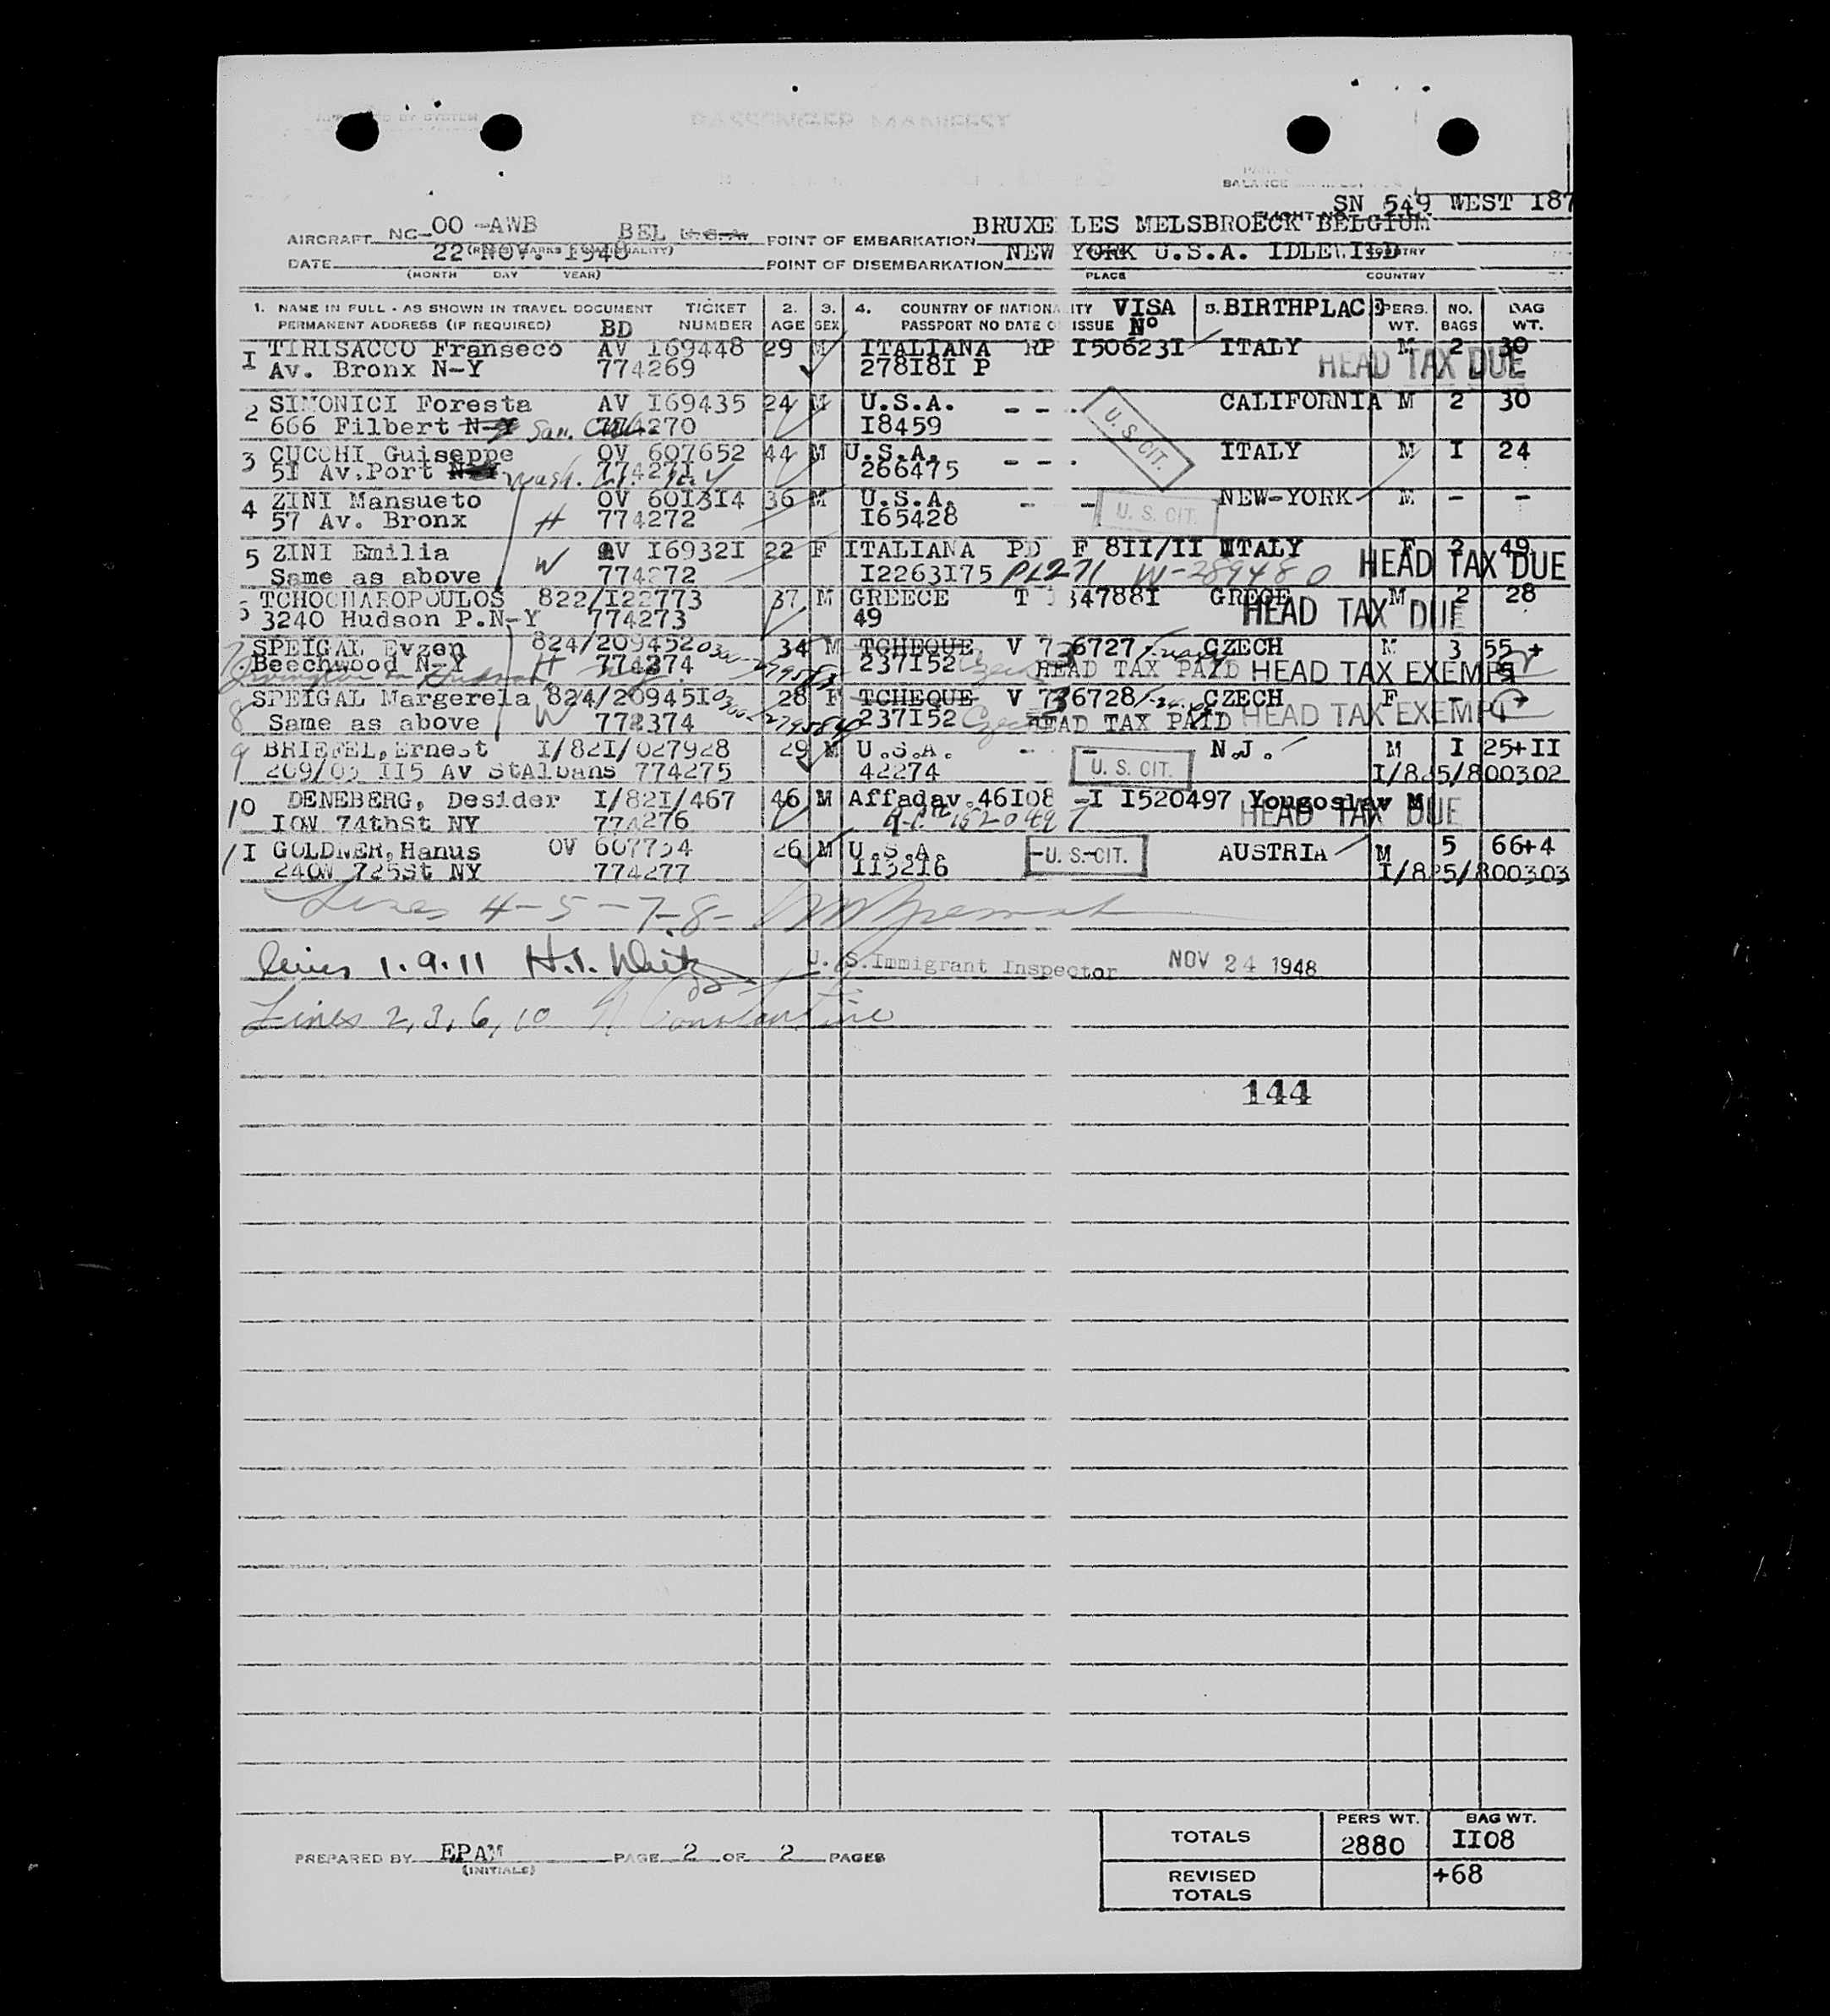 PASSENGER MANIFEST
SN 549 WEST 187
AIRCRAFT NC-OO-AWB BEL U.S.A. POINT OF EMBARKATION BRUXE LES MELSBROECK BELGIUM
DATE 22 NOV. 1948 POINT OF DISEMBARKATION NEW YORK U.S.A. IDLEWILD
(MONTH DAY YEAR) PLACE COUNTRY
1. NAME IN FULL - AS SHOWN IN TRAVEL DOCUMENT TICKET 2. 3. 4. COUNTRY OF NATIONA ITY VISA 5. BIRTHPLACE PERS. NO. BAG
PERMANENT ADDRESS (IF REQUIRED) BD NUMBER AGE SEX PASSPORT NO DATE O ISSUE No WT. BAGS WT.
I TIRISACCO Franseco AV I69448 29 M ITALIANA RP I50623I ITALY M 2 30
Av. Bronx N-Y 774269 278I8I P HEAD TAX DUE
2 SIMONICI Foresta AV I69435 24 M U.S.A. - - . CALIFORNIA M 2 30
666 Filbert N-Y San. 774270 I8459 U. S CIT.
3 CUCCHI Guiseppe OV 607652 44 M U.S.A. - - . ITALY M I 24
5I Av.Port N-Y Wash. N.Y 77427I 266475
4 ZINI Mansueto OV 60I3I4 36 M U.S.A. - - NEW-YORK M - -
57 Av. Bronx H 774272 I65428 U. S. CIT.
5 ZINI Emilia AV I6932I 22 F ITALIANA PD F 8II/II ITALY F 2 49
Same as above W 774272 I2263I75 PL271 W-289480 HEAD TAX DUE
6 TCHOCHAROPOULOS 822/I22773 37 M GREECE T 34788I GRECE M 2 28
3240 Hudson P.N-Y 774273 49 HEAD TAX DUE
7 SPEIGAL Evzen 824/209452 34 M TCHEQUE V 736727 CZECH M 3 55 +
Beechwood N-Y H 774374 237I52 Czech HEAD TAX PAID HEAD TAX EXEMPT
Irvington on Hudson N.Y.
8 SPEIGAL Margerela 824/20945I 28 F TCHEQUE V 736728 CZECH F - -
Same as above W 772374 237I52 Czech HEAD TAX PAID HEAD TAX EXEMPT
9 BRIEFEL, Ernest I/82I/027928 29 M U.S.A. - - N.J. M I 25+II
209/05 II5 Av StAlbans 774275 42274 U. S. CIT. I/825/800302
10 DENEBERG, Desider I/82I/467 46 M Affadav.46I08 -I I520497 Yougoslav M
IOW 74thSt NY 774276 HEAD TAX DUE
11 GOLDNER, Hanus OV 607754 26 M U.S.A. U. S. CIT. AUSTRIA M 5 66+4
240W 725St NY 774277 II32I6 I/825/800303
Lines 4-5-7-8-
lines 1.9.11 H.I. U. S. Immigrant Inspector NOV 24 1948
Lines 2,3,6,10 Constantine
144
TOTALS PERS WT. 2880 BAG WT. II08
PREPARED BY EPAM PAGE 2 OF 2 PAGES
(INITIALS)
REVISED TOTALS +68